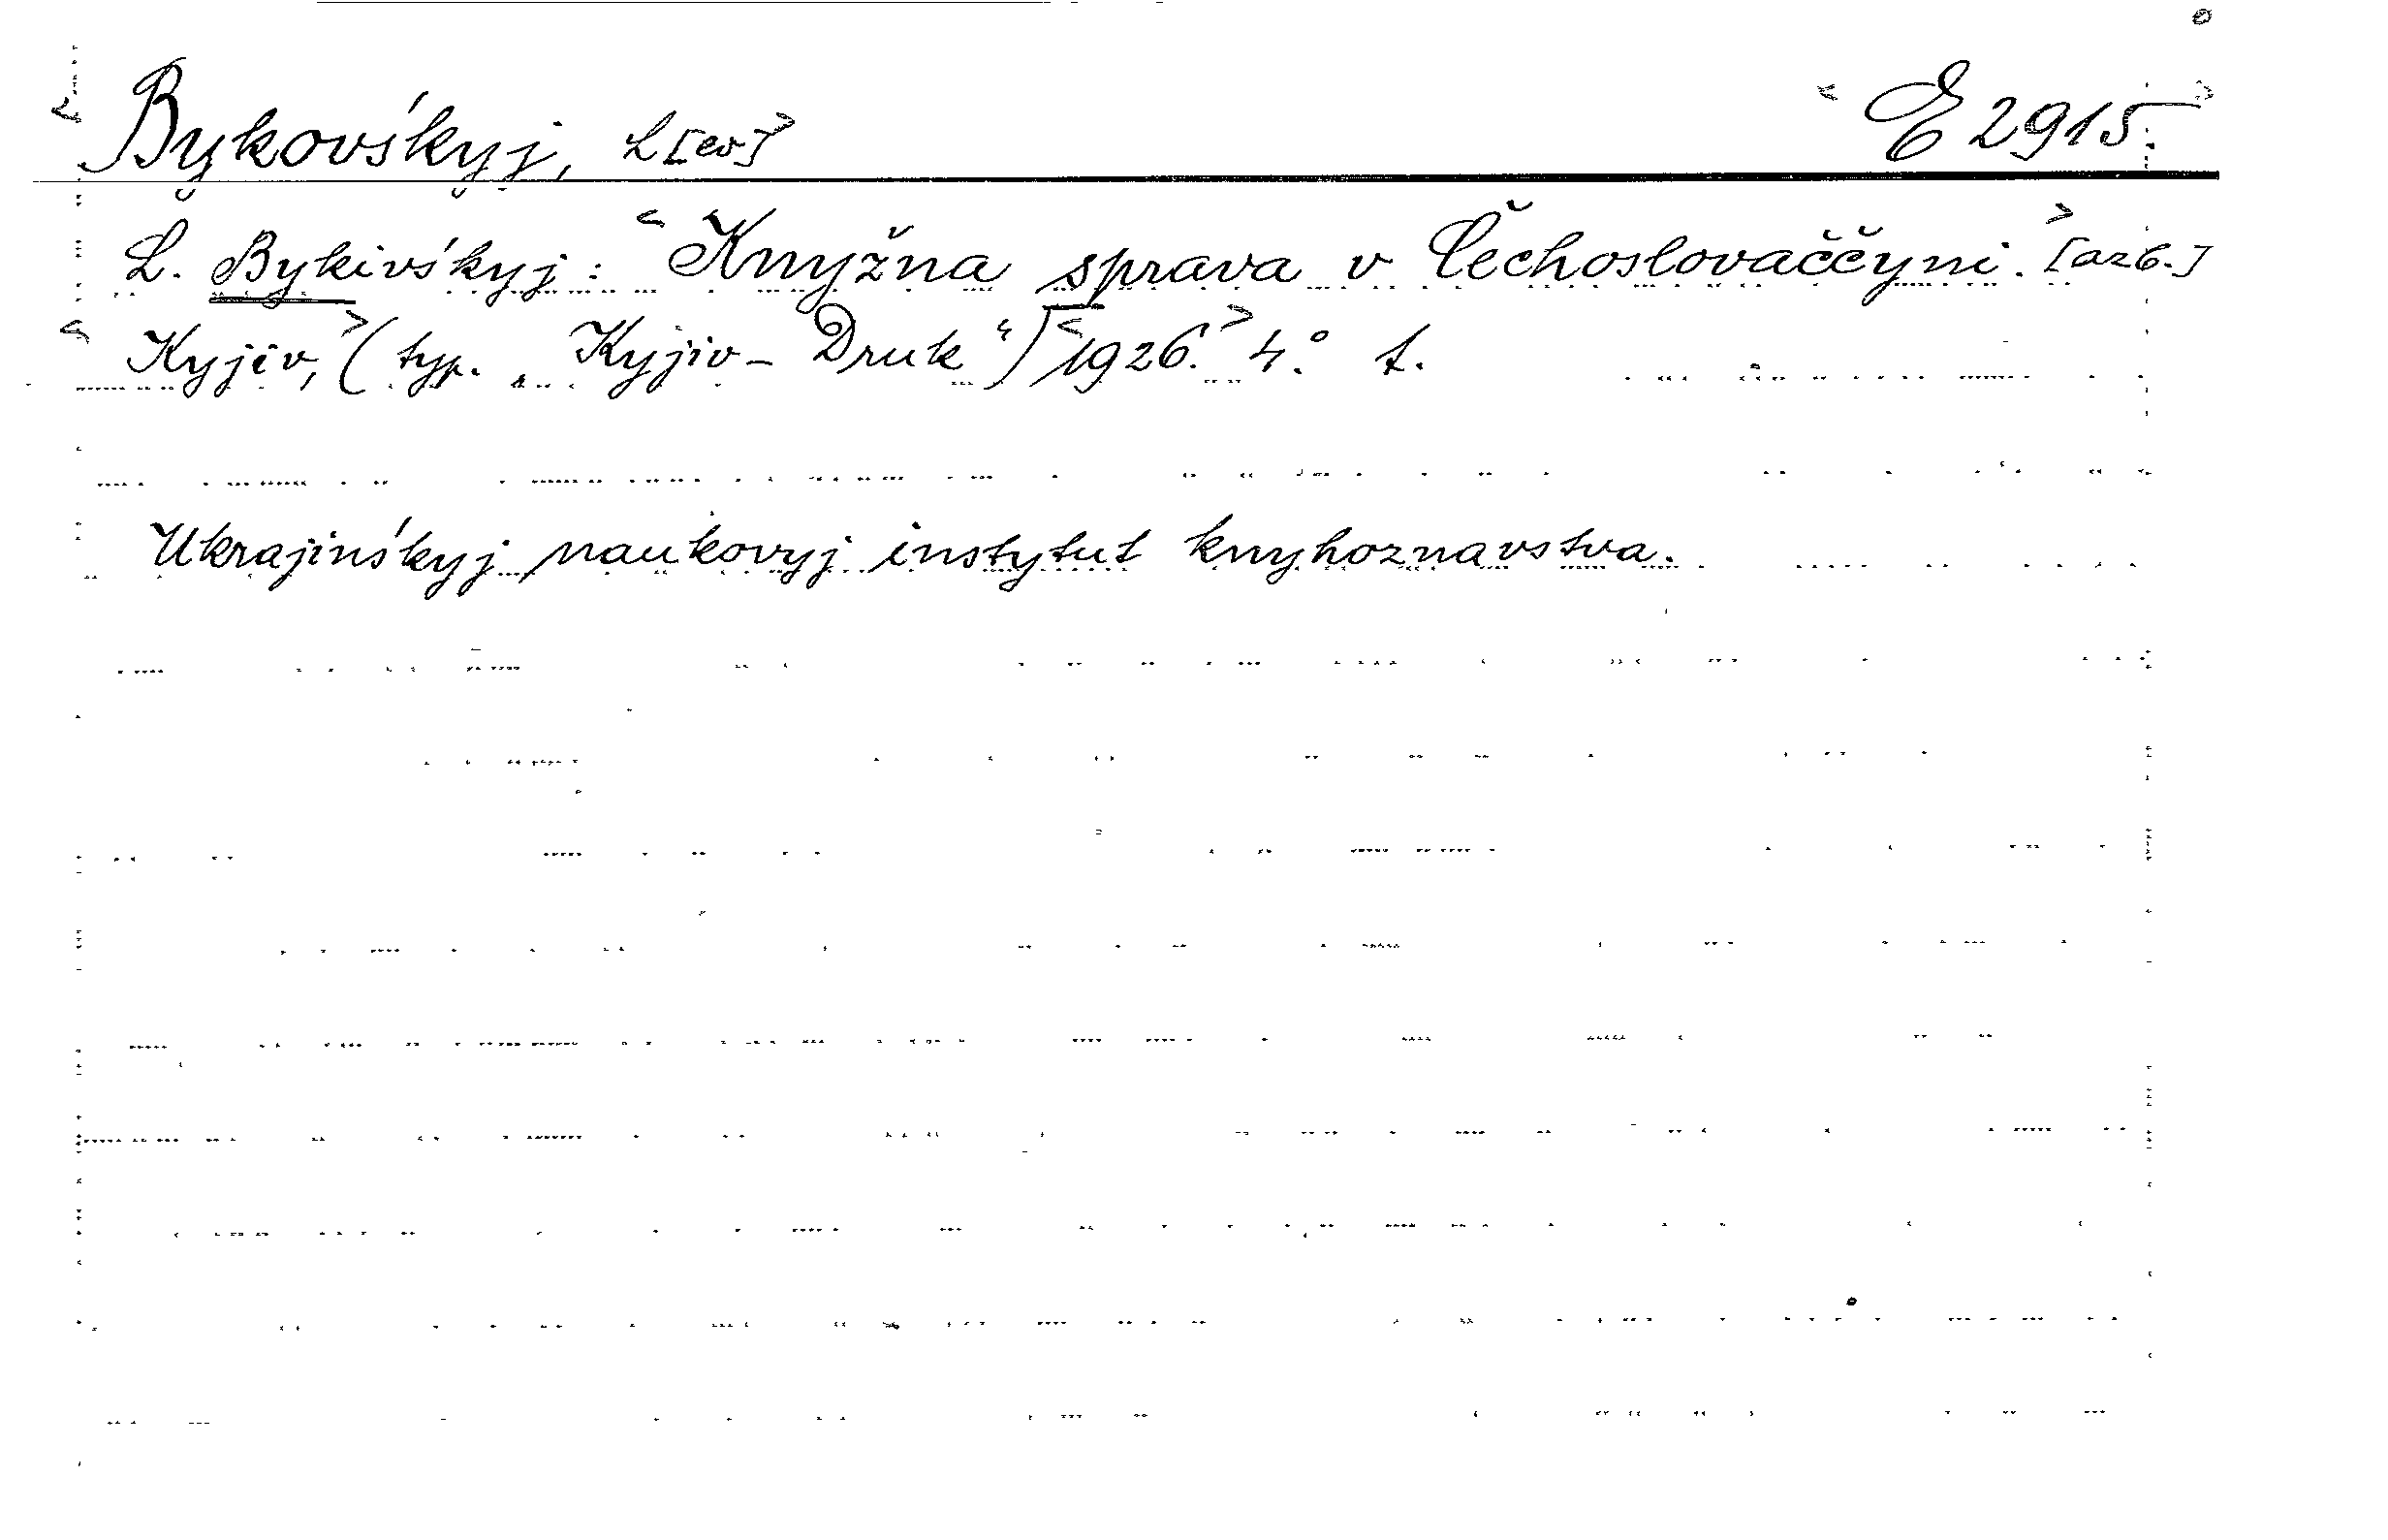 <Bykovśkyj, L[ev]> <E 2915.>
L. Bykivśkyj: <Knyžna sprava v Čechoslovaččyni.> [azb.]
<Kyjiv,> (typ. „Kyjiv-Druk“) <1926.> 4.° t.
Ukrajinśkyj naukovyj instytut knyhoznavstva.